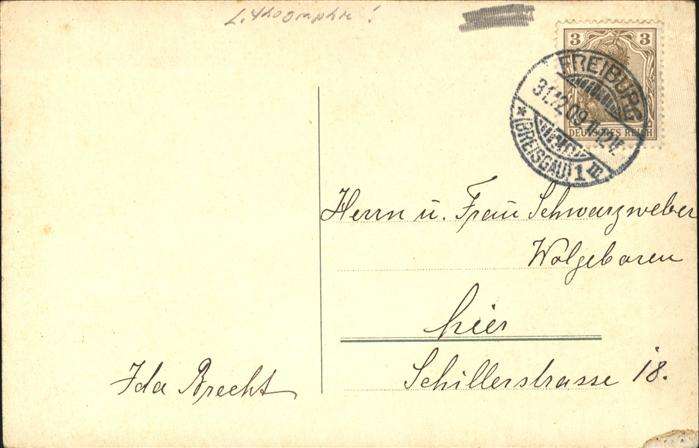 Lithographie!
3 3
DEUTSCHES REICH
FREIBURG
31.12.09
* (BREISGAU) 1
Herrn u. Frau Schwarzweber
Wolgeboren
hier
Schillerstrasse 18.
Ida Brecht